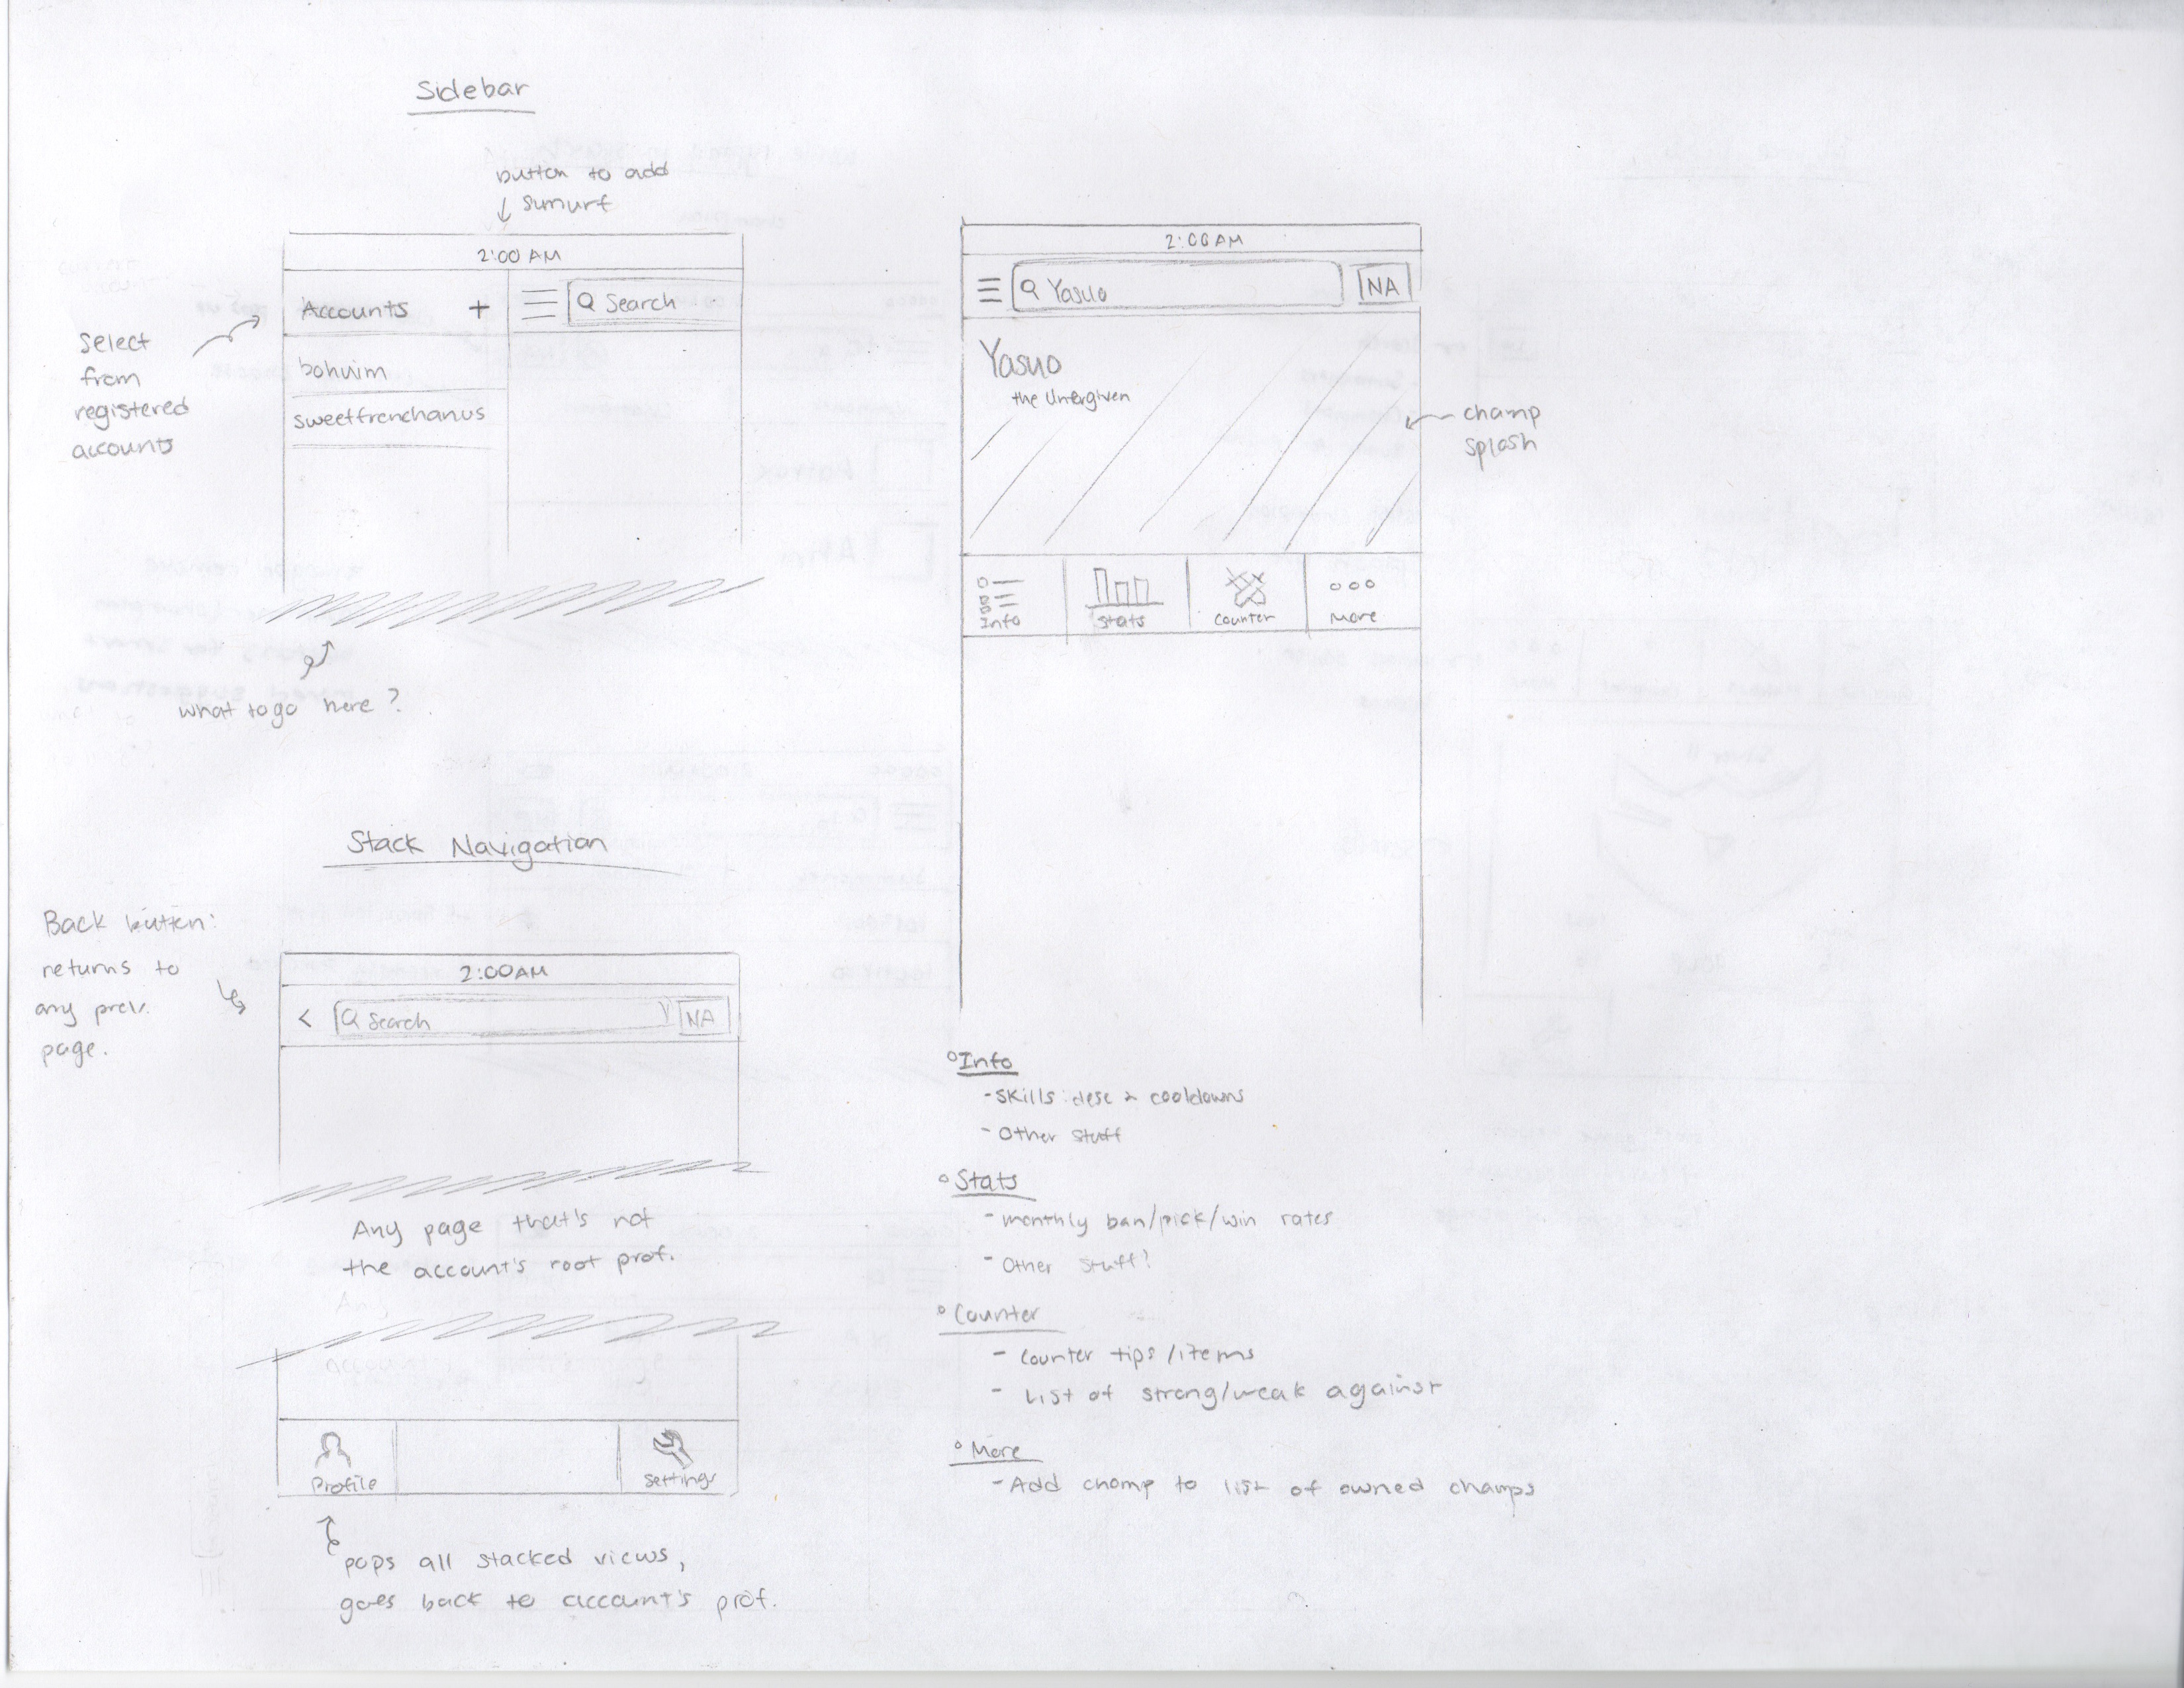 Sidebar
button to add
sumurf
2:00 AM
Accounts +
Search
bohvim
sweetfrenchanus
Select
from
registered
accounts
what to go here?
Stack Navigation
Back button:
returns to
any prev.
page.
2:00AM
< Search NA
Any page that's not
the account's root prof.
Profile
Settings
pops all stacked views,
goes back to account's prof.
2:00AM
Yasuo NA
Yasuo
the Unforgiven
champ
splash
Info Stats Counter More
Info
- Skills: desc & cooldowns
- Other stuff
Stats
- monthly ban/pick/win rates
- Other stuff?
Counter
- Counter tips/items
- List of strong/weak against
More
- Add champ to list of owned champs